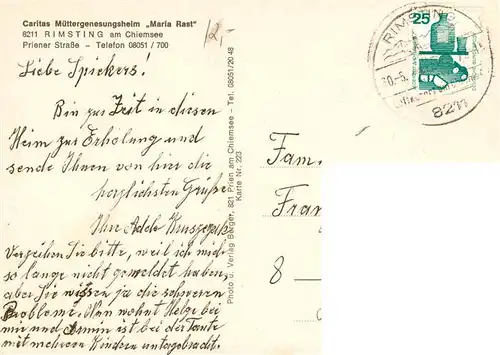 Caritas Müttergenesungsheim „Maria Rast"
8211 RIMSTING am Chiemsee
Priener Straße – Telefon 08051 / 700
12,-
RIMSTING
25
8211
Liebe Spiekers!
Bin zur Zeit in diesen
Heim zur Erholung und
sende Ihnen von hier die
herzlichsten Grüße
Ihre Adele
Verzeihen Sie bitte, weil ich mich
so lange nicht gemeldet haben,
aber Sie wissen ja die schweren
Probleme. Nun wohnt Helge bei
mir und Armin ist bei der Tante
mit mehreren Kindern untergebracht.
Photo u. Verlag Berger, 821 Prien am Chiemsee – Tel. 08051/20 48
Karte Nr. 223
Fam.
Fran
8